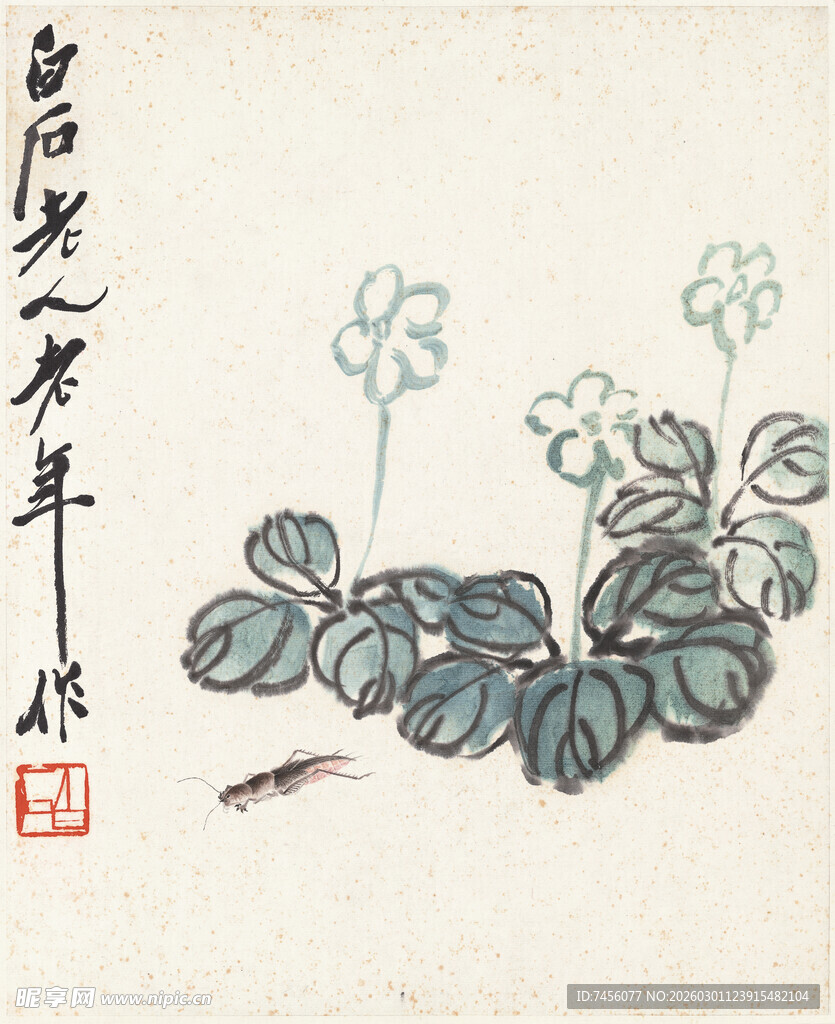 白石老人老年作
昵享网 www.nipic.cn
ID:7456077 NO:20260301123915482104